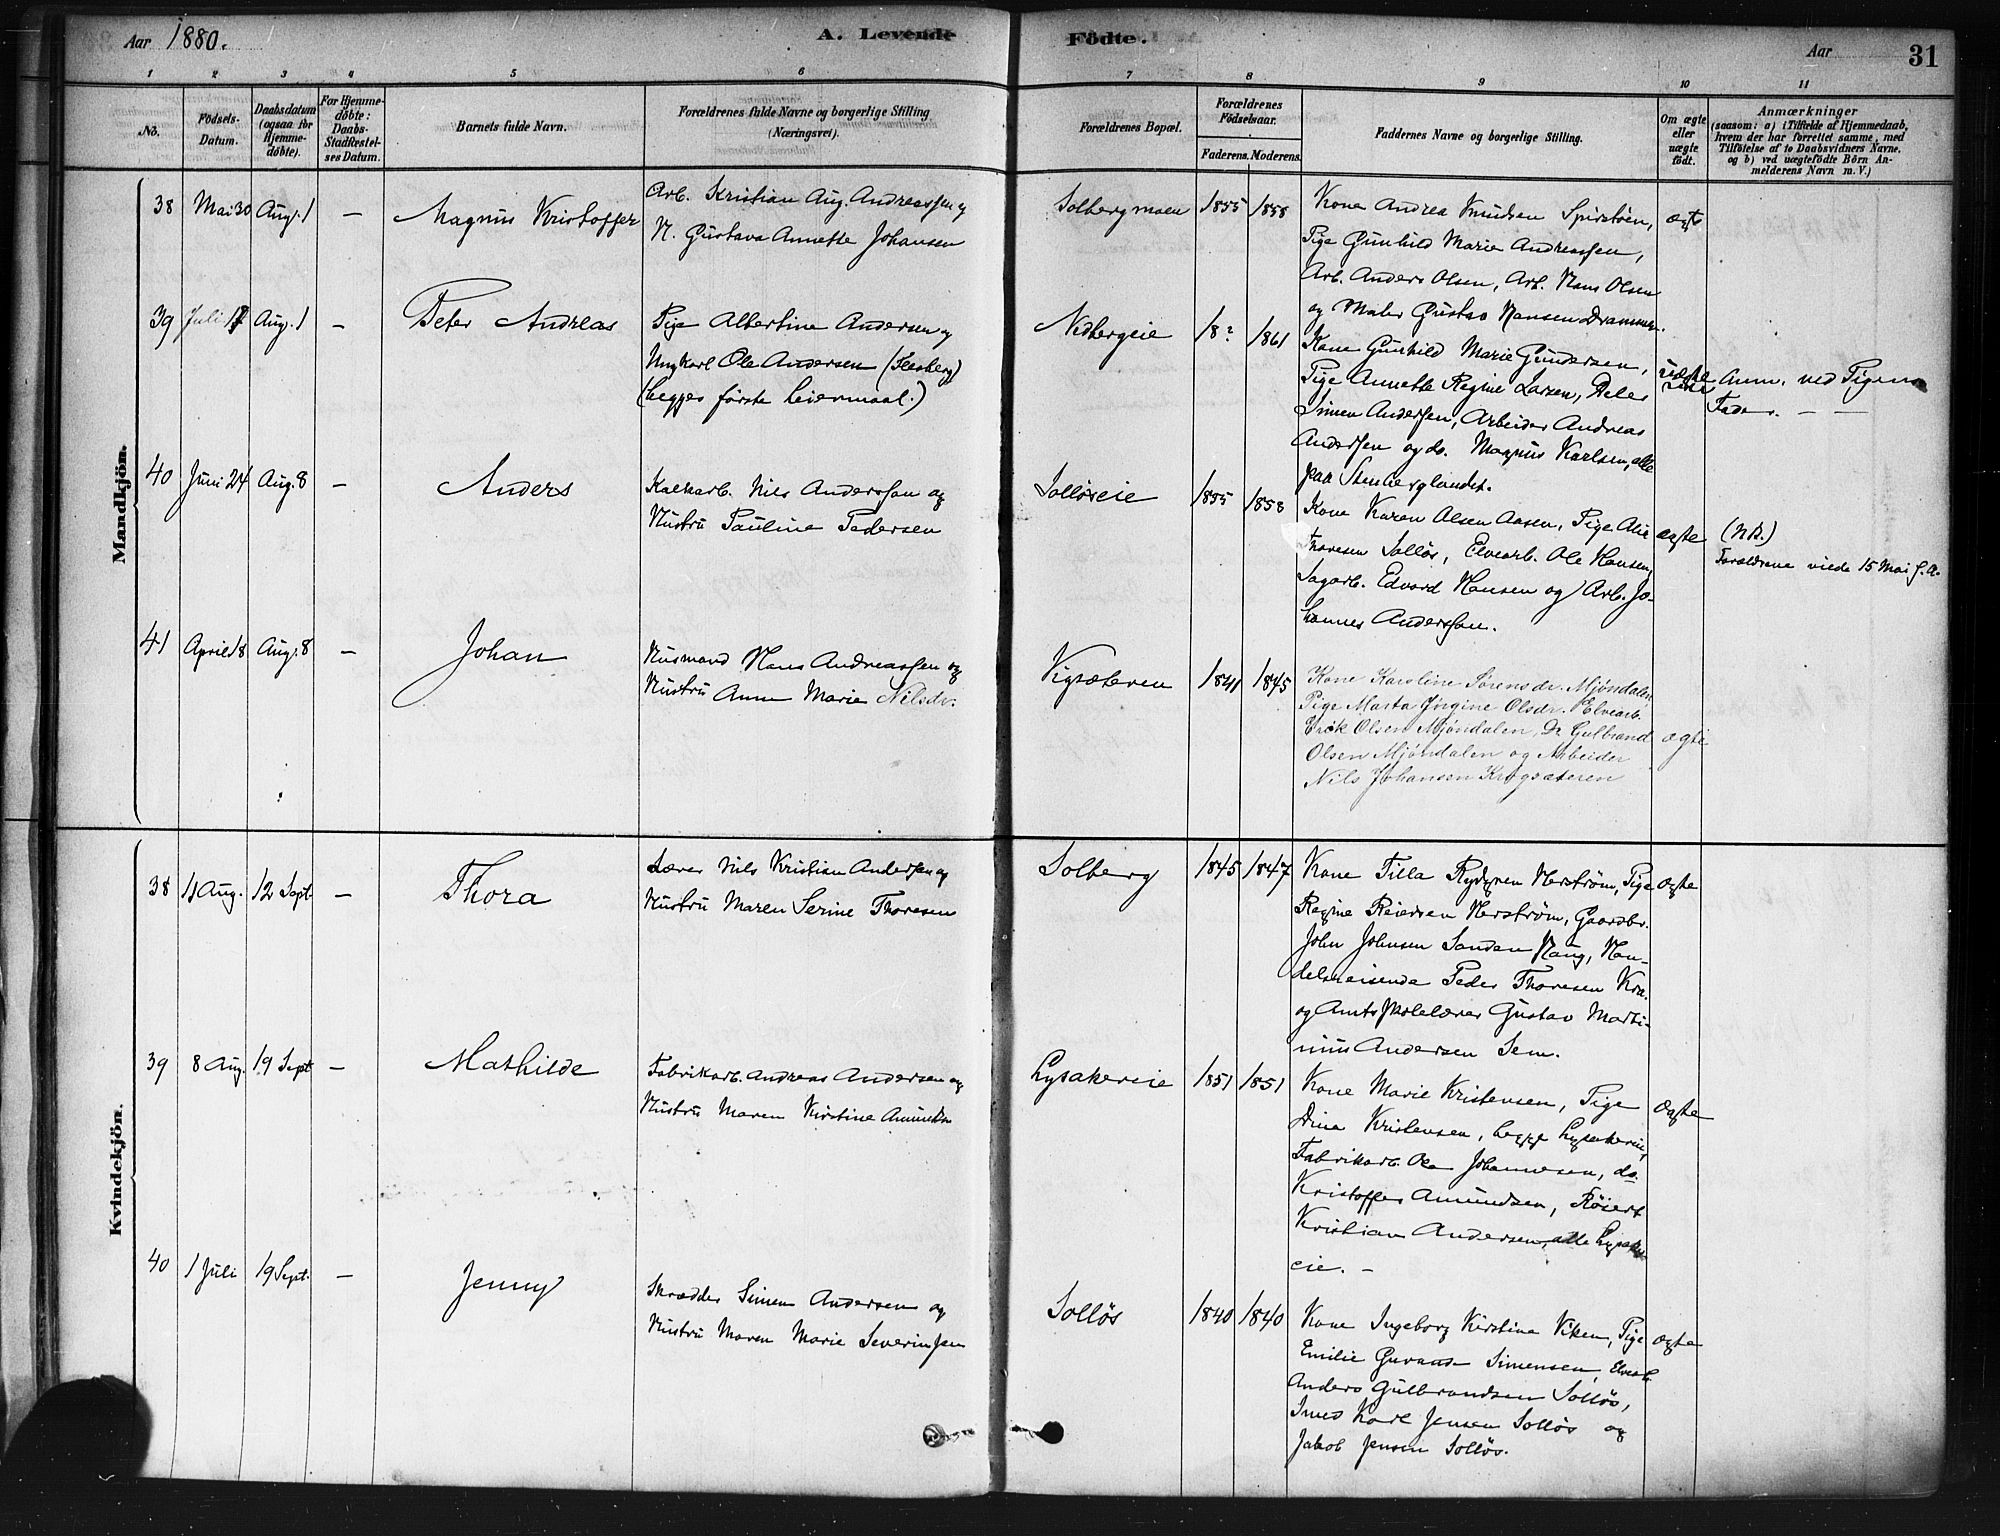 Aar 1880.
A. Levende Födte.
Aar
31
1 2 3 4 5 6 7 8 9 10 11
No.
Födsels-Datum.
Daabsdatum (ogsaa for Hjemme-döbte).
For Hjemme-döbte: Daabs-Stadfæstel-ses Datum.
Barnets fulde Navn.
Forældrenes fulde Navne og borgerlige Stilling (Næringsvei).
Forældrenes Bopæl.
Forældrenes Födselsaar.
Faderens. Moderens.
Faddernes Navne og borgerlige Stilling.
Om ægte eller uægte födt.
Anmærkninger
(saasom: a) i Tilfælde af Hjemmedaab, hvem der har forrettet samme, med Tilföielse af to Daabsvidners Navne, og b) ved uægtefödte Börn An-melderens Navn m. V.)
Mandkjön.
38 Mai 30 Aug. 1 — Magnus Kristoffer
Arb. Kristian Aug. Andreassen og
H. Gustava Annette Johansen
Solbergmoen 1855 1858
Kone Andrea Knudsen
Pige Gunhild Marie Andreassen,
Arb. Anders Olsen, Arb. Hans Olsen
og Maler Gustav Hansen Drammen.
ægte
39 Juli 17 Aug. 1 — Peter Andreas
Pige Albertine Andersen og
Ungkarl Ole Andersen (Flesberg)
(begges første Leiermaal.)
Nedbergeie 18? 1861
Kone Gunhild Marie Gundersen,
Pige Annette Regine Larsen,
Simen Andersen, Arbeider Andreas
Andersen og do. Magnus Karlsen, alle
paa Stenberglandet.
uægte
Anm. ved Pigens
Fader. — —
40 Juni 24 Aug. 8 — Anders
Kalkarb. Nils Anderssen og
Hustru Pauline Pedersen
Solløseie 1855 1858
Kone Karen Olsen Aasen, Pige
Thoresen Solløs, Elvearb. Ole Hansen,
Sagarb. Edvard Hansen og Arb. Jo-
hannes Anderssen.
ægte
(NB.)
Forældrene viede 15 Mai f. A.
41 April 18 Aug. 8 — Johan
Husmand Hans Andreassen og
Hustru Anne Marie Nilsdr.
Vigsæteren 1841 1845
Kone Karoline Sørensdr. Mjøndalen,
Pige Marta Jørgine Olsdr. Elvearb.
Erik Olsen Mjøndalen, Do Gulbrand
Olsen Mjøndalen og Arbeider
Nils Johansen Krogsæteren
ægte
Kvindekjön.
38 11 Aug. 12 Sept. — Thora
Lærer Nils Kristian Andersen og
Hustru Maren Serine Thoresen
Solberg 1845 1847
Kone Tilla Rydgren Herstrøm, Pige
Regine Reiersen Herstrøm, Gaardbr.
John Johnsen Sanden Haug, Han-
delsreisende Peder Thoresen Kra.
og Amtsskolelærer Gustav Marti-
nius Andersen Sem.
ægte
39 8 Aug. 19 Sept — Mathilde
Fabrikarb. Andreas Andersen og
Hustru Maren Kirstine Amundsen
Lysakereie 1851 1851
Kone Marie Kristensen, Pige
Dina Kristensen, begge Lysakereie,
Fabrikarb. Ole Johannesen, do.
Kristoffer Amundsen,
Kristian Andersen, alle Lysaker-
eie. —
ægte
40 1 Juli 19 Sept. — Jenny
Skrædder Simen Andersen og
Hustru Maren Marie Severinsen
Solløs 1840 1840
Kone Ingeborg Kirstine Viken, Pige
Emilie Simensen, Elvearb.
Anders Gulbrandsen Solløs,
Smed Karl Jensen Solløs og
Jakob Jensen Solløs.
ægte